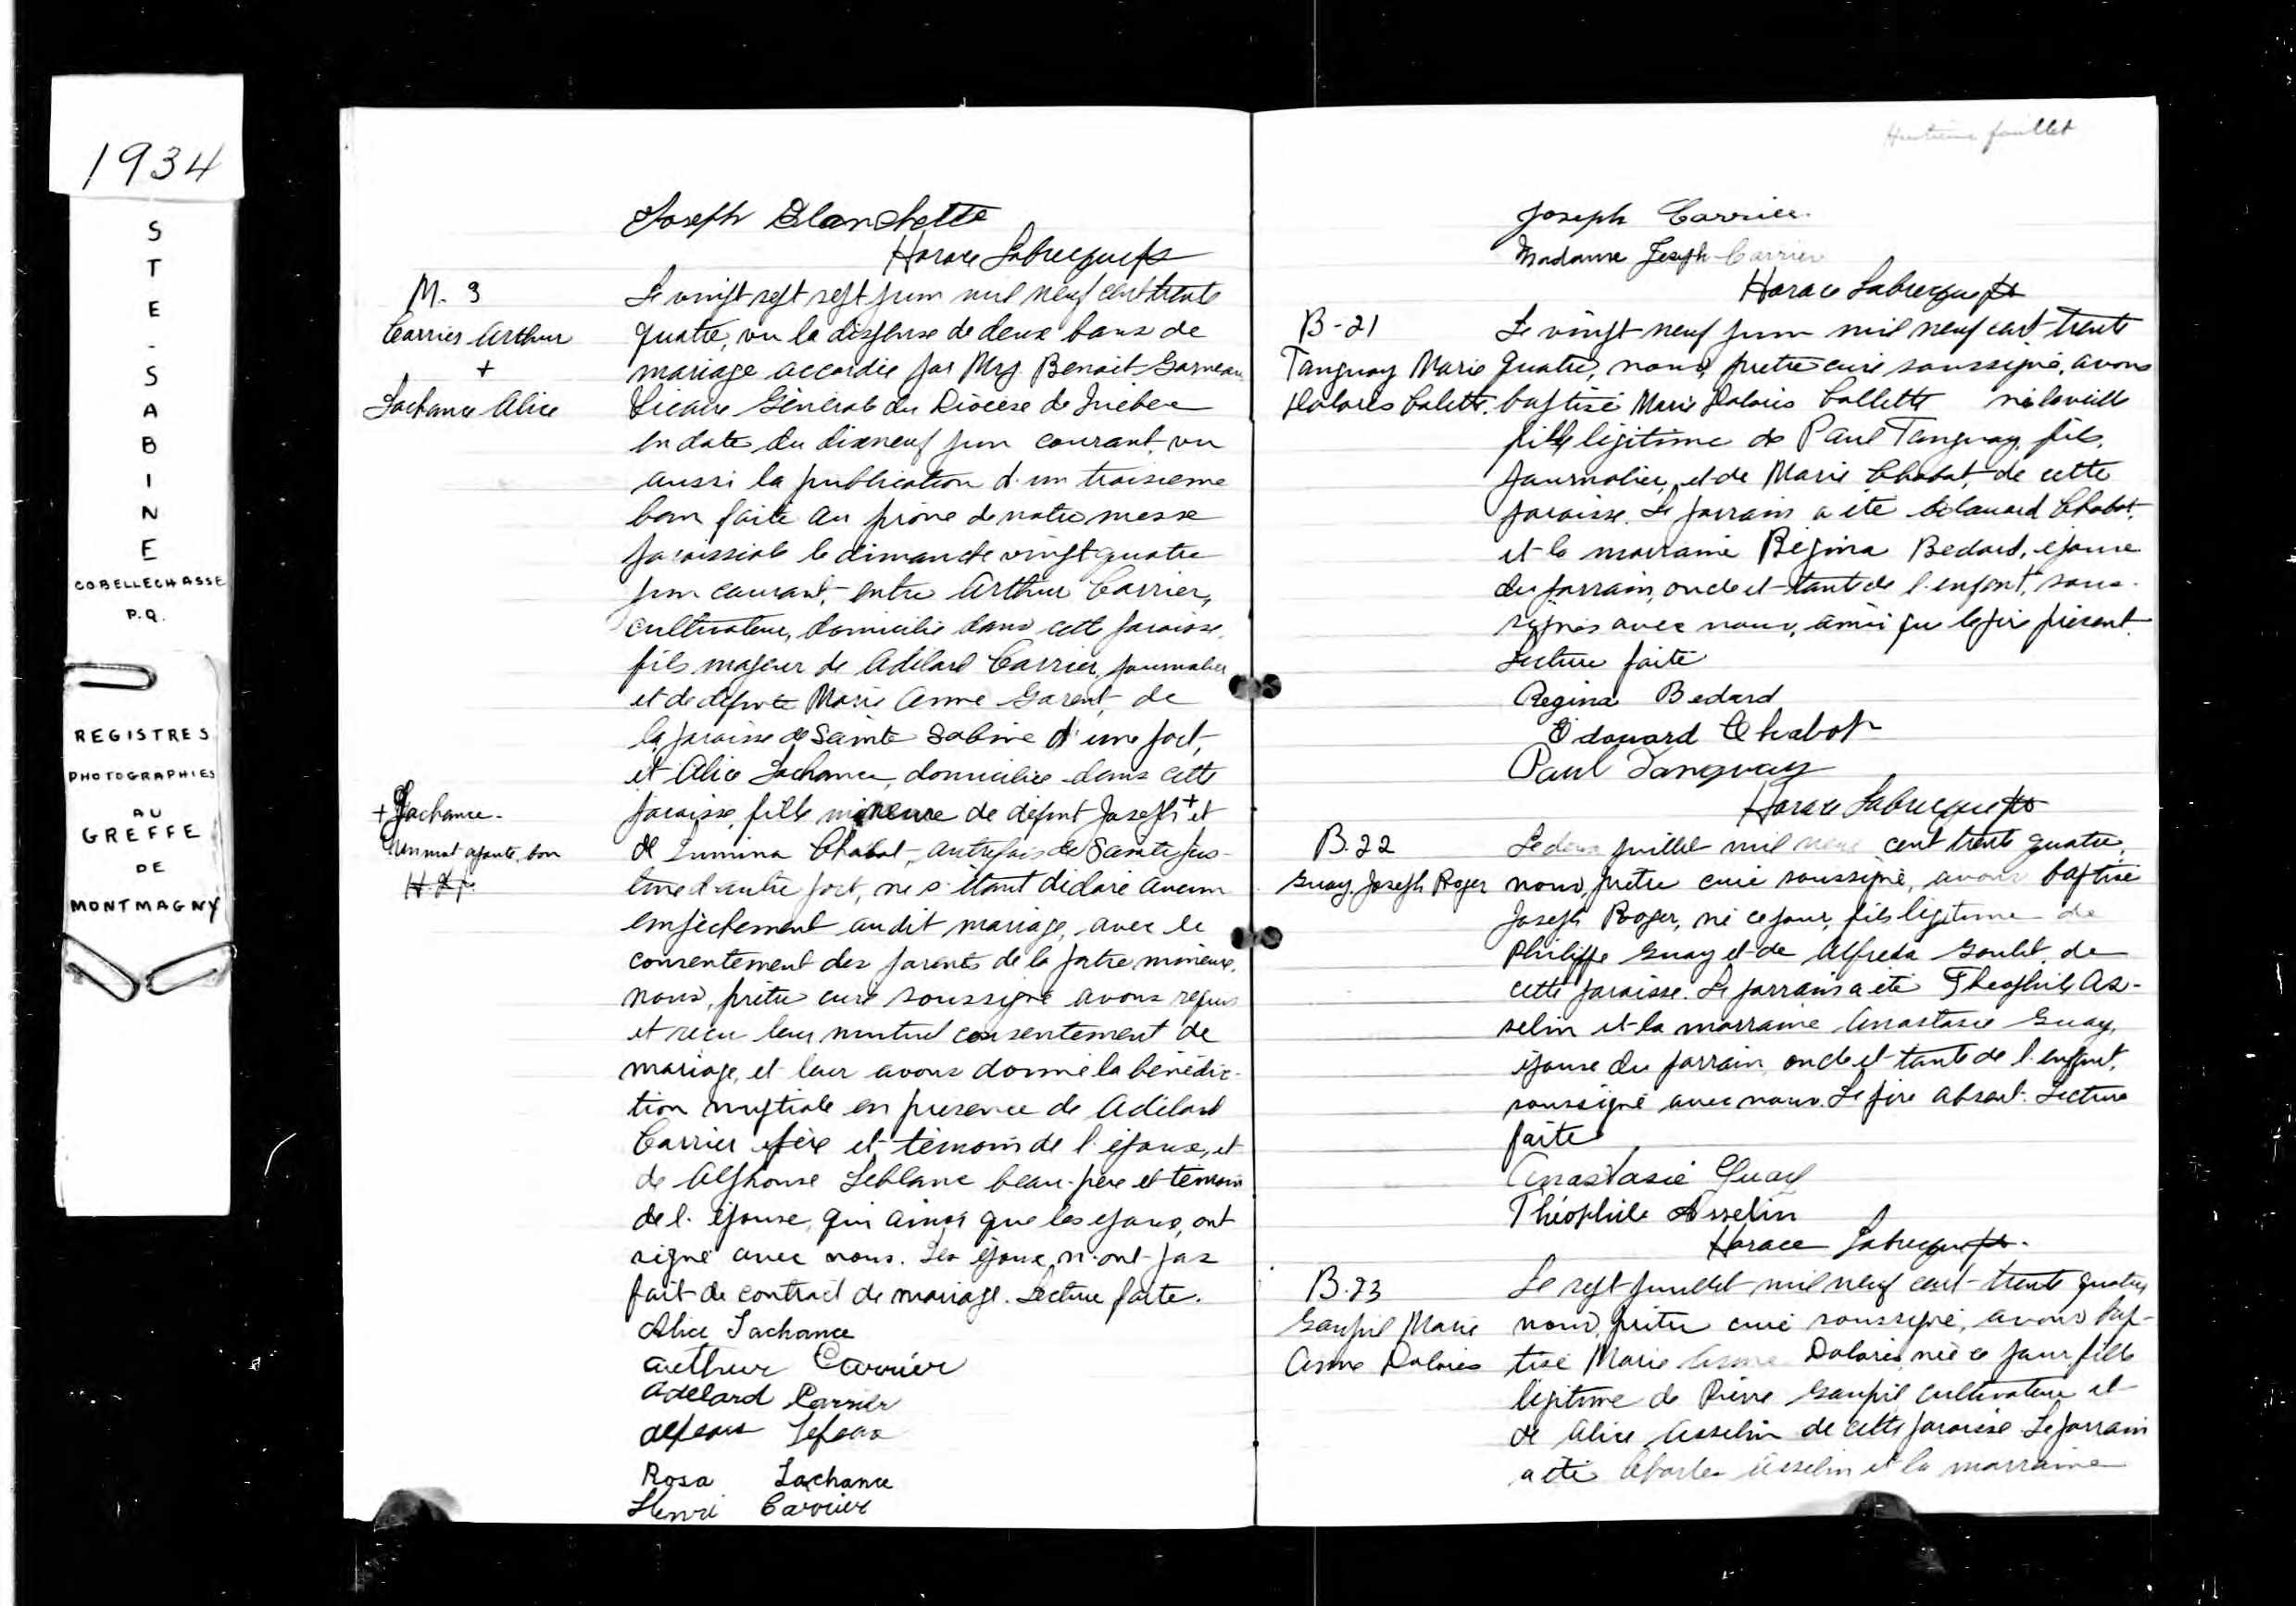 1934
STE-SABINE
COBELLECHASSE
P.Q.
REGISTRES
PHOTOGRAPHIES
AU
GREFFE
DE
MONTMAGNY
Joseph Blanchette
Horace Labrecque ptr
M. 3
Carrier Arthur
+
Lachance Alice
Le vingt sept sept juin mil neuf cent trente
quatre, vu la dispense de deux bans de
mariage accordée par Mgr. Benoit Garneau
Vicaire Général du Diocèse de Québec
en date du dixneuf juin courant, vu
aussi la publication d'un troisieme
ban faite au prone de notre messe
paroissiale le dimanche vingt quatre
juin courant, entre Arthur Carrier,
cultivateur, domicilié dans cette paroisse,
fils majeur de Adélard Carrier, journalier
et de défunte Marie Anne Garent, de
la paroisse de Sainte Sabine d'une part,
et Alice Lachance, domiciliée dans cette
paroisse, fille mineure de défunt Joseph + et
de Lumina Chabot, autrefois de Sainte Jus-
tine d'autre part, ne s'étant déclaré aucun
empêchement audit mariage, avec le
consentement des parents de la partie mineure,
nous, prêtre curé soussigné avons requis
et reçu leur mutuel consentement de
mariage, et leur avons donné la bénédic-
tion nuptiale en presence de Adélard
Carrier père et témoin de l'époux, et
de Alphonse Leblanc beau-père et témoin
de l'épouse, qui ainsi que les époux, ont
signé avec nous. Les époux n'ont pas
fait de contrat de mariage. Lecture faite.
+ Lachance.
Un mot ajouté, bon
H. L. p.
Alice Lachance
Arthur Carrier
Adelard Carrier
Rosa Lachance
Henri Carrier
Huitième feuillet
Joseph Carrier.
Madame Joseph Carrier
Horace Labrecque ptr
B-21
Tanguay Marie
Dolorès Colette.
Le vingt-neuf juin mil neuf cent trente
quatre, nous, pretre curé soussigné, avons
baptisé Marie Dolorès Collette née la veille
fille légitime de Paul Tanguay, fils,
journalier, et de Marie Chabot, de cette
paroisse. Le parrain a été Edouard Chabot,
et la marraine Régina Bedard, épouse
du parrain, oncle et tante de l'enfant, sous-
signés avec nous, ainsi que le père présent.
Lecture faite
Regina Bedard
Edouard Chabot
Paul Tanguay
Horace Labrecque ptr
B.22
Guay. Joseph Roger
Le deux juillet mil neuf cent trente quatre,
nous, prêtre curé soussigné, avons baptisé
Joseph Roger, né ce jour, fils légitime de
Philippe Guay et de Alfreda Goulet, de
cette paroisse. Le parrain a été Théophile As-
selin et la marraine Anastasie Guay,
épouse du parrain, oncle et tante de l'enfant,
soussigné avec nous. Le père absent. Lecture
faite
Anastasie Guay
Théophile Asselin
Horace Labrecque ptr.
B.23
Goupil Marie
Anne Dolorès
Le sept juillet mil neuf cent trente quatre
nous, prêtre curé soussigné, avons bap-
tisé Marie Anne Dolorès, née ce jour, fille
légitime de Pierre Goupil cultivateur et
de Alice Asselin de cette paroisse. Le parrain
a été Charles Asselin et la marraine